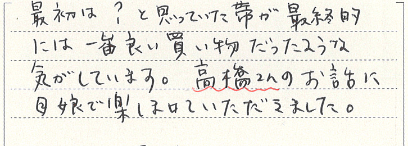 最初は？と思っていた帯が最終的
には一番良い買い物だったような
気がしています。高橋さんのお話に
母娘で楽しませていただきました。